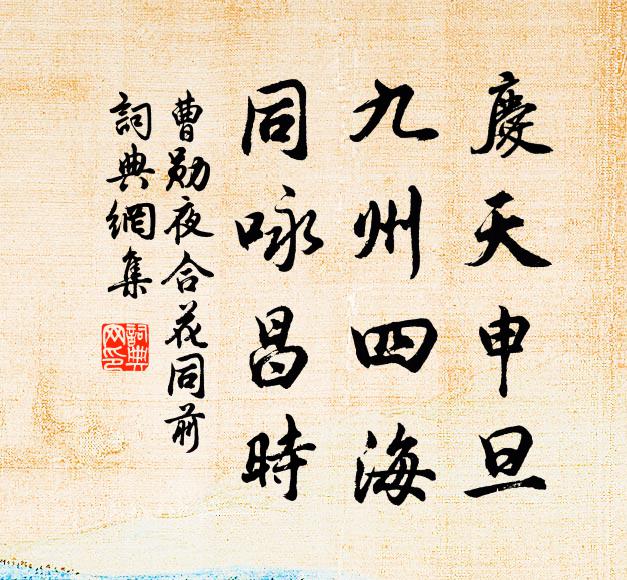 慶天申旦
九州四海
同咏昌時
曹勛夜合花同前
詞典網集
詞典
网印